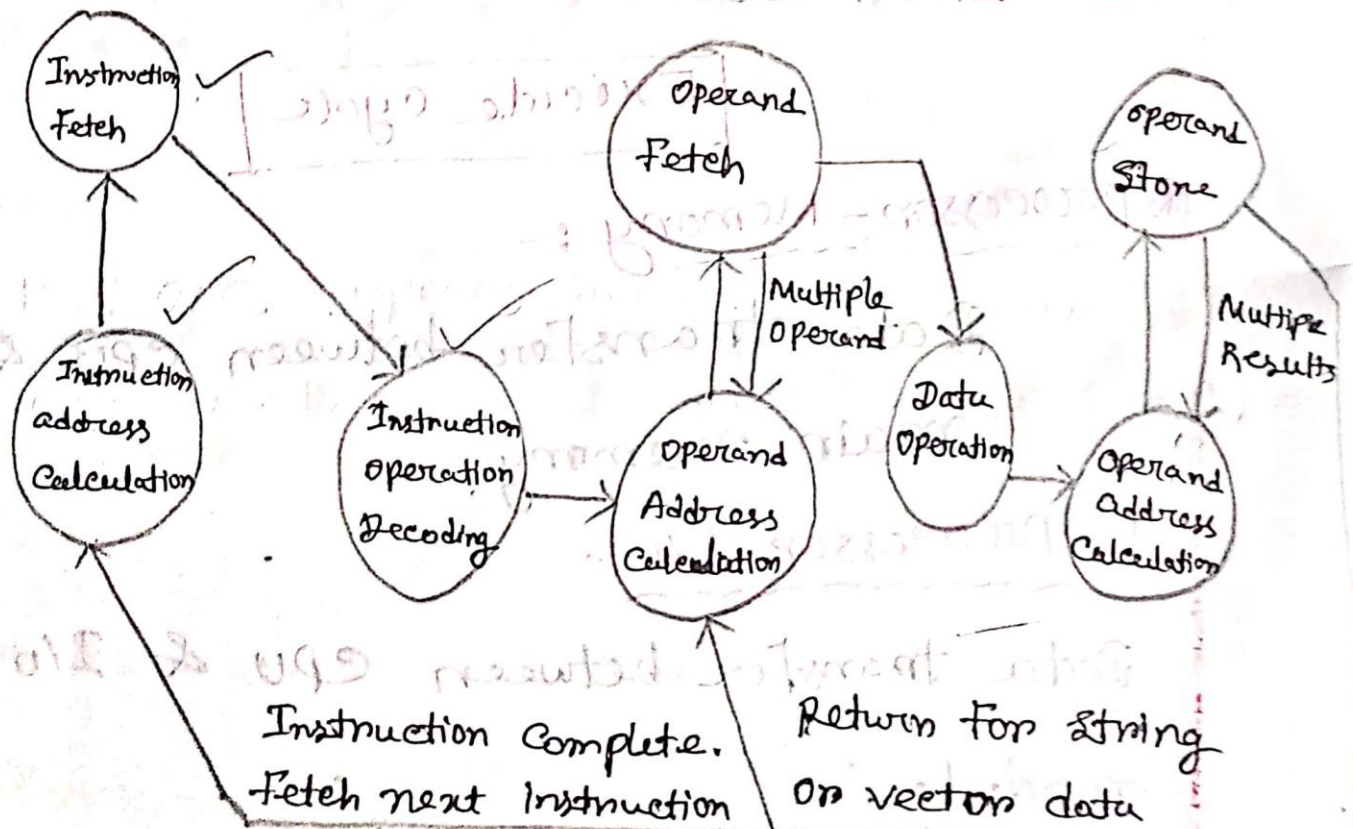 Instruction
Fetch
Operand
Fetch
Operand
Store
Multiple
Operand
Multiple
Results
Instruction
address
Calculation
Instruction
Operation
Decoding
Operand
Address
Calculation
Data
Operation
Operand
Address
Calculation
Instruction Complete.
Fetch next instruction
Return For string
or vector data